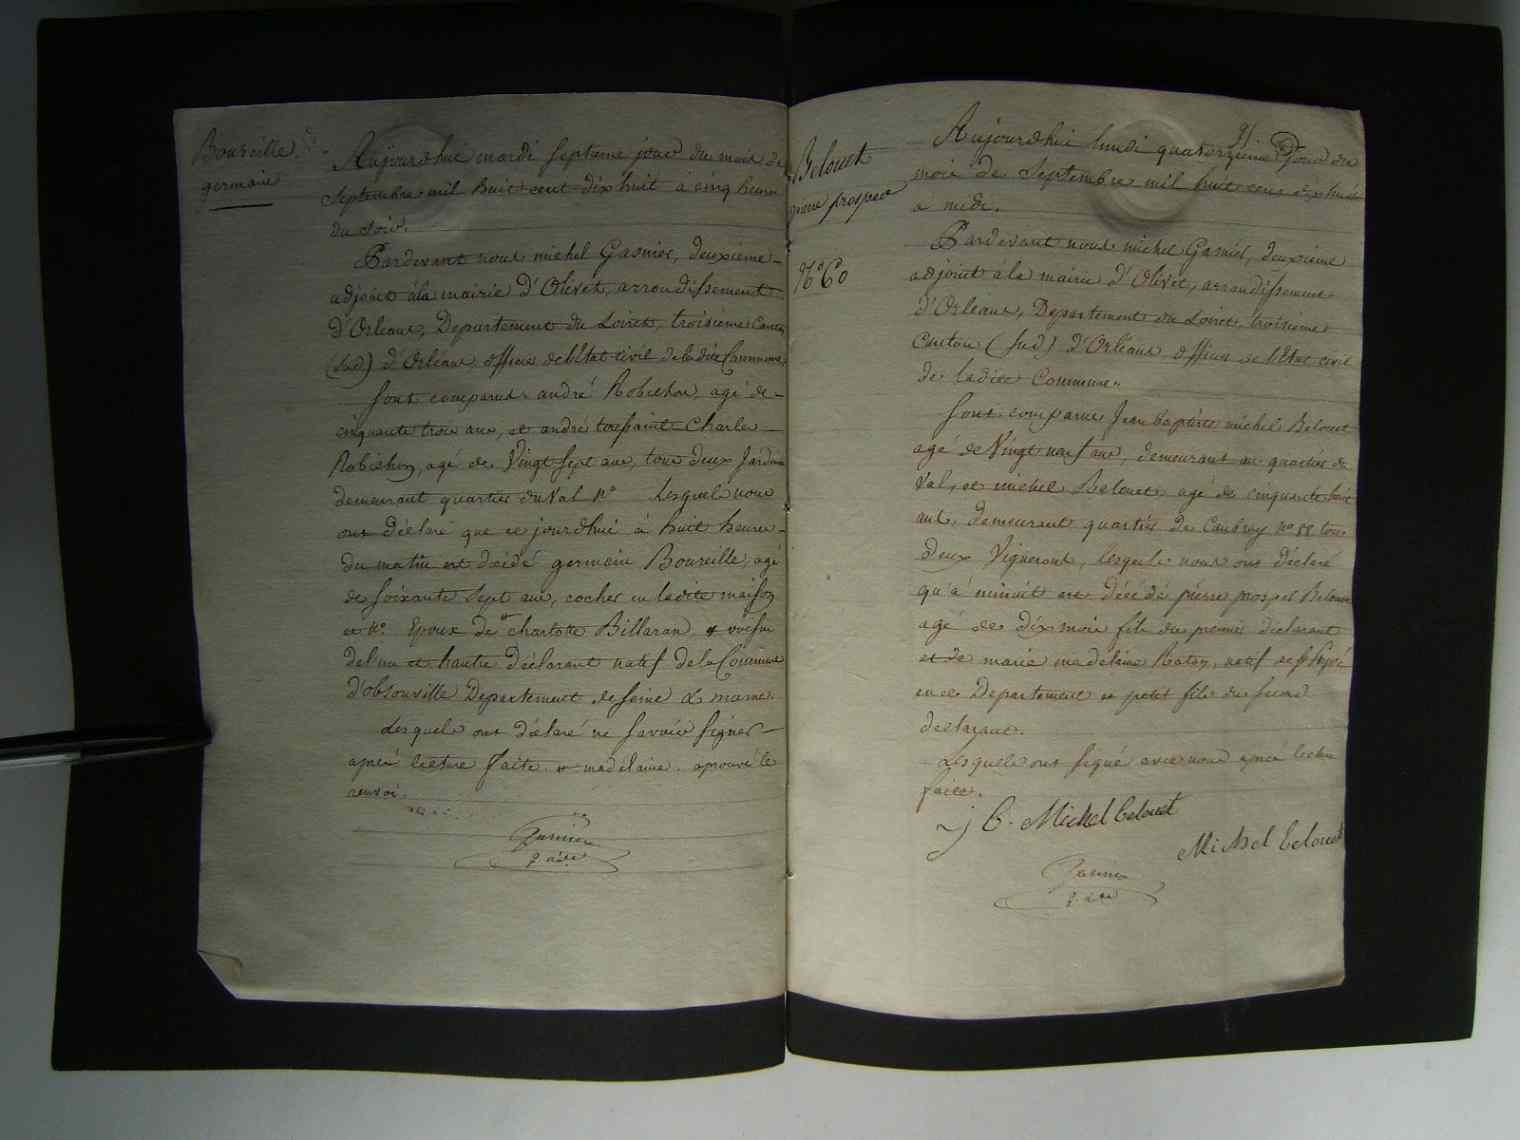 Boureille
germain
Aujourdhui mardi septieme jour du mois de
Septembre mil huit cent dix huit à cinq heure
du soir.
Pardevant nous michel Gasnier, deuxième
adjoint à la mairie d'Olivet, arrondissement
d'Orleans, Departement du Loiret, troisieme Canton
(Sud) d'Orleans officier de l'Etat civil de la dite Commune
sont comparus andré Robichon, agé de
cinquante trois ans, et andré toussaint Charles
Robichon, agé de Vingt Sept ans, tous deux Jardin
demeurant quartier du Val N° Lesquels nous
ont déclaré que ce jourdhui à huit heures
du matin est décédé germain Boureille, agé
de soixante Sept ans, cocher en ladite maison
et N° Epoux de charlotte Billaran voisin
del'un et lautre déclarant natif de la Commune
d'obsonville Departement de Seine & marne.
Lesquels ont déclaré ne savoir signer
après lecture faite madelaine aprouvé le
renvoi.
Gasnier
Belouet
pierre prosper
N° 60
91
Aujourdhui lundi quatorzième Jour du
mois de Septembre mil huit cent dix huit
a midi.
Pardevant nous michel Gasnier, deuxieme
adjoint à la mairie d'Olivet, arrondissement
d'Orleans, Departement du Loiret, troisieme
Canton (Sud) d'Orleans officier de l'Etat civil
de ladite Commune.
sont comparus Jean baptiste michel Belouet
agé de Vingt neuf ans, demeurant au quartier du
Val, et michel Belouet agé de cinquante huit
ans, demeurant quartier de Caubray n° 88 tous
deux Vignerons, lesquels nous ont déclaré
qu'à minuit est décédé pierre prosper Belouet
agé de dix mois fils du premier déclarant
et de marie madelaine Raton, natif de
en ce Departement et petit fils du second
declarant.
Lesquels ont signé avec nous après lecture
faite.
j B. Michel belouet
Michel belouet
Gasnier